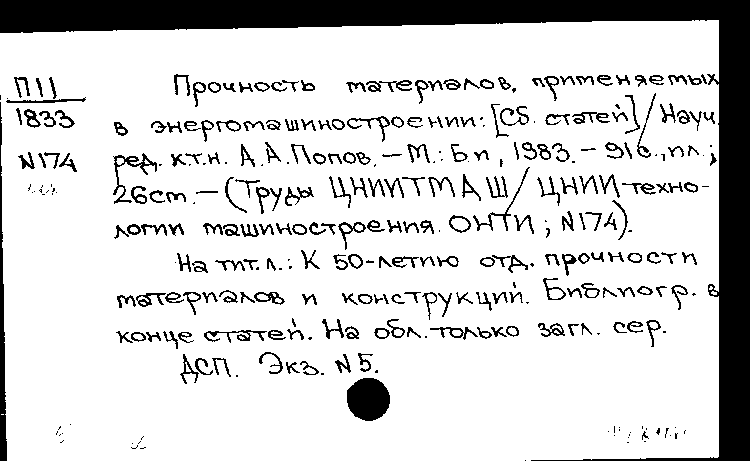 П11
1833
N174
Прочность материалов, применяемых
в энергомашиностроении: [Сб. статей] / Науч.
ред. к.т.н. А.А.Попов. – М.: Б.и, 1983. – 91с., ил.;
26см. – (Труды ЦНИИТМАШ / ЦНИИ техно-
логии машиностроения. ОНТИ; N174).
На тит.л.: К 50-летию отд. прочности
материалов и конструкций. Библиогр. в
конце статей. На обл. только загл. сер.
ДСП. Экз. N5.